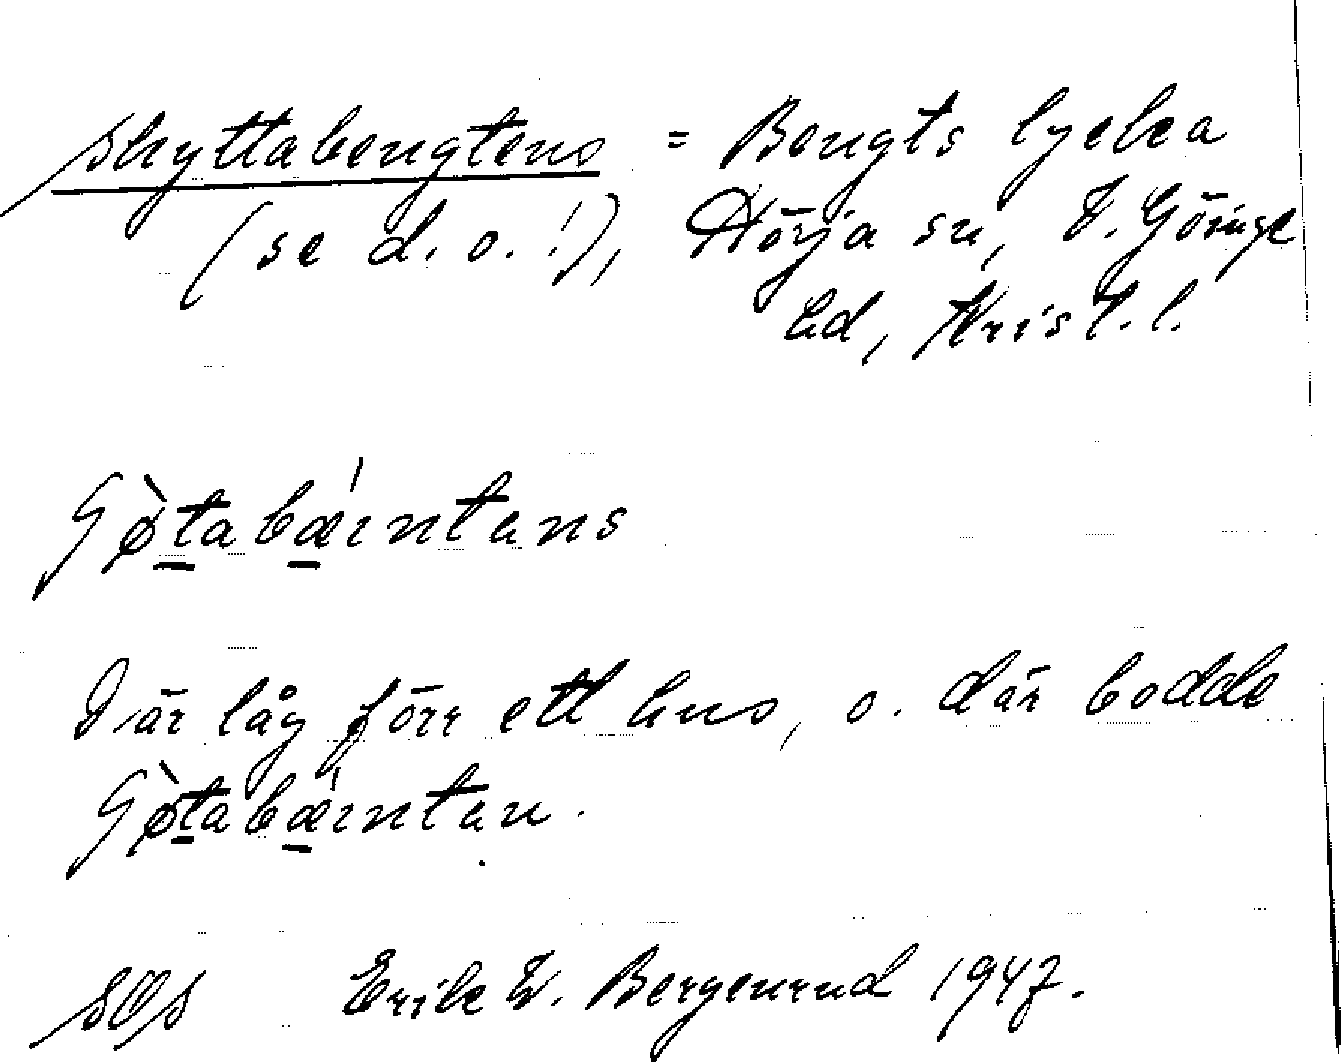 Skyttabengtens = Bengts lycka
(se d. o.!), Hörja sn, V. Göinge
hd, Krist. l.
Gø̀tabæ̍ıntens
Där låg förr ett hus, o. där bodde
Gø̀tabæ̍ınten.
SOS Erik W. Bergenrud 1947.